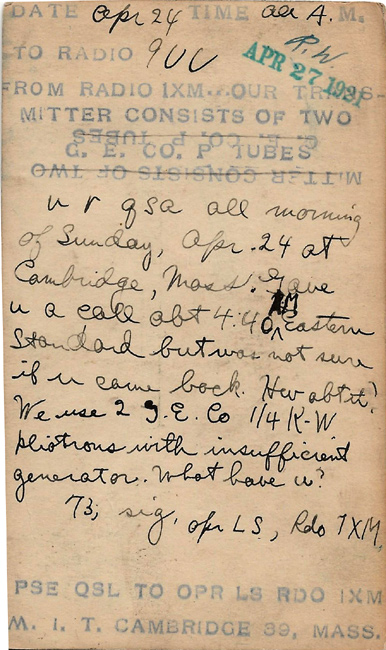 DATE Apr 24 TIME all A.M.
R.W.
APR 27 1921
TO RADIO 9UU
FROM RADIO 1XM. OUR TRANS-
MITTER CONSISTS OF TWO
G. E. CO. P TUBES
G. E. CO. P TUBES
MITTER CONSISTS OF TWO
u r qsa all morning
of Sunday, Apr. 24 at
Cambridge, Mass. Gave
u a call abt 4:40 AM Eastern
Standard but was not sure
if u came back. Hw abt it?
We use 2 G.E. Co 1/4 K-W
pliotrons with insufficient
generator. What have u?
73, sig, opr LS, Rdo 1XM,
PSE QSL TO OPR LS RDO 1XM
M. I. T. CAMBRIDGE 39, MASS.